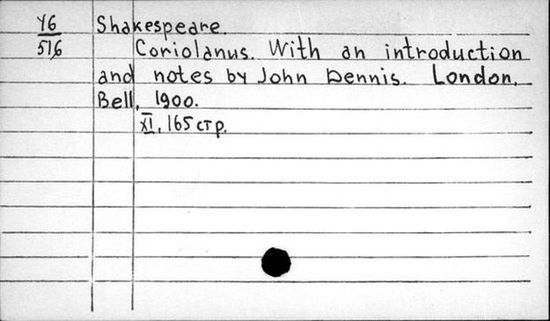 У6 Shakespeare.
516 Coriolanus. With an introduction
and notes by John Dennis. London,
Bell, 1900.
XI, 165 стр.